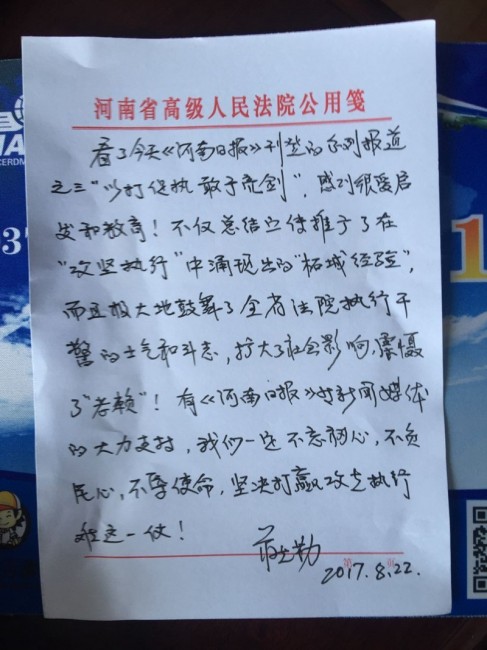 河南省高级人民法院公用笺
看了今天《河南日报》刊登的系列报道
之三“以打促执敢于亮剑”，感到很受启
发和教育！不仅总结宣传推广了在
“攻坚执行”中涌现出的“柘城经验”，
而且极大地鼓舞了全省法院执行干
警的士气和斗志，扩大了社会影响，震慑
了“老赖”！有《河南日报》等新闻媒体
的大力支持，我们一定不忘初心，不负
民心，不辱使命，坚决打赢攻克执行
难这一仗！
2017.8.22.
1